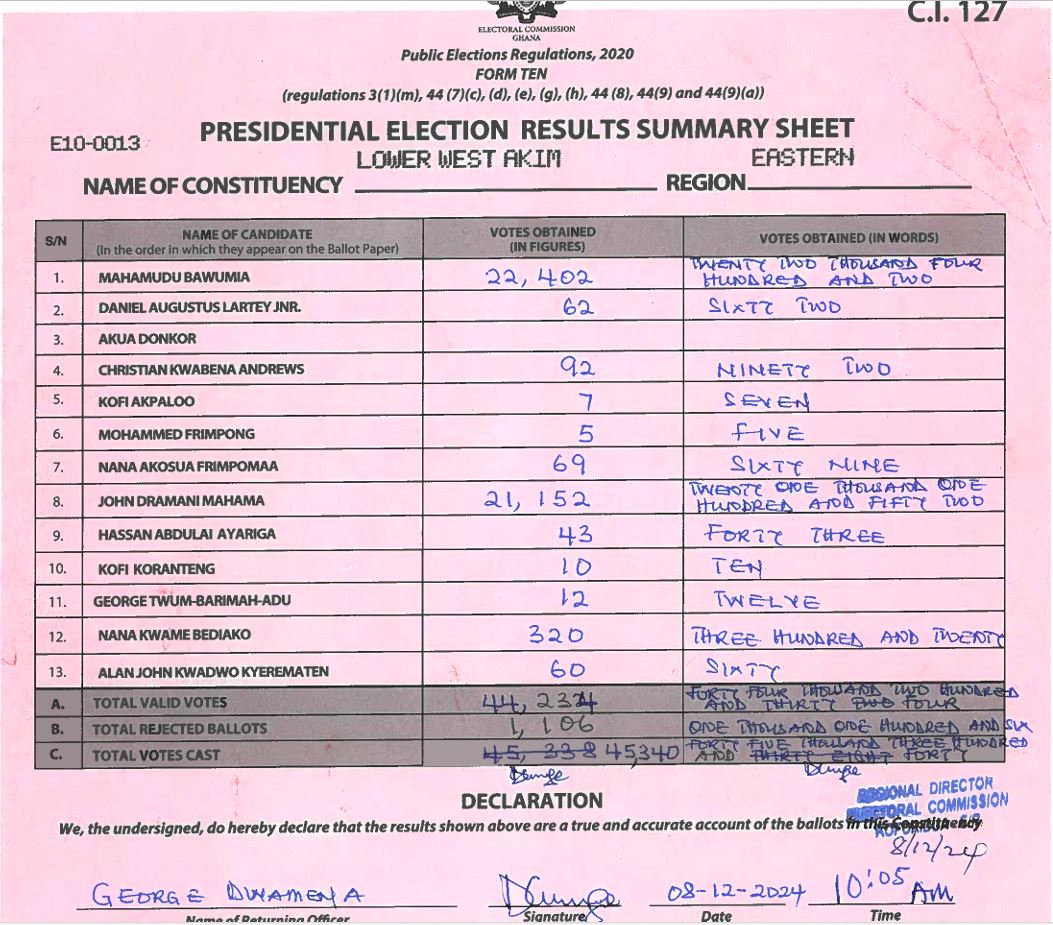 C.I. 127
ELECTORAL COMMISSION
GHANA
Public Elections Regulations, 2020
FORM TEN
(regulations 3(1)(m), 44 (7)(c), (d), (e), (g), (h), 44 (8), 44(9) and 44(9)(a))
PRESIDENTIAL ELECTION RESULTS SUMMARY SHEET
E10-0013
LOWER WEST AKIM EASTERN
NAME OF CONSTITUENCY REGION
S/N NAME OF CANDIDATE (In the order in which they appear on the Ballot Paper) VOTES OBTAINED (IN FIGURES) VOTES OBTAINED (IN WORDS)
1. MAHAMUDU BAWUMIA 22,402 TWENTY TWO THOUSAND FOUR HUNDRED AND TWO
2. DANIEL AUGUSTUS LARTEY JNR. 62 SIXTY TWO
3. AKUA DONKOR
4. CHRISTIAN KWABENA ANDREWS 92 NINETY TWO
5. KOFI AKPALOO 7 SEVEN
6. MOHAMMED FRIMPONG 5 FIVE
7. NANA AKOSUA FRIMPOMAA 69 SIXTY NINE
8. JOHN DRAMANI MAHAMA 21,152 TWENTY ONE THOUSAND ONE HUNDRED AND FIFTY TWO
9. HASSAN ABDULAI AYARIGA 43 FORTY THREE
10. KOFI KORANTENG 10 TEN
11. GEORGE TWUM-BARIMAH-ADU 12 TWELVE
12. NANA KWAME BEDIAKO 320 THREE HUNDRED AND TWENTY
13. ALAN JOHN KWADWO KYEREMATEN 60 SIXTY
A. TOTAL VALID VOTES 44,234 FORTY FOUR THOUSAND TWO HUNDRED AND THIRTY TWO FOUR
B. TOTAL REJECTED BALLOTS 1,106 ONE THOUSAND ONE HUNDRED AND SIX
C. TOTAL VOTES CAST 45,338 45,340 FORTY FIVE THOUSAND THREE HUNDRED AND THIRTY EIGHT FORTY
DECLARATION
REGIONAL DIRECTOR
ELECTORAL COMMISSION
We, the undersigned, do hereby declare that the results shown above are a true and accurate account of the ballots in this Constituency
8/12/24
GEORGE DWAMENA 08-12-2024 10:05 AM
Name of Returning Officer Signature Date Time